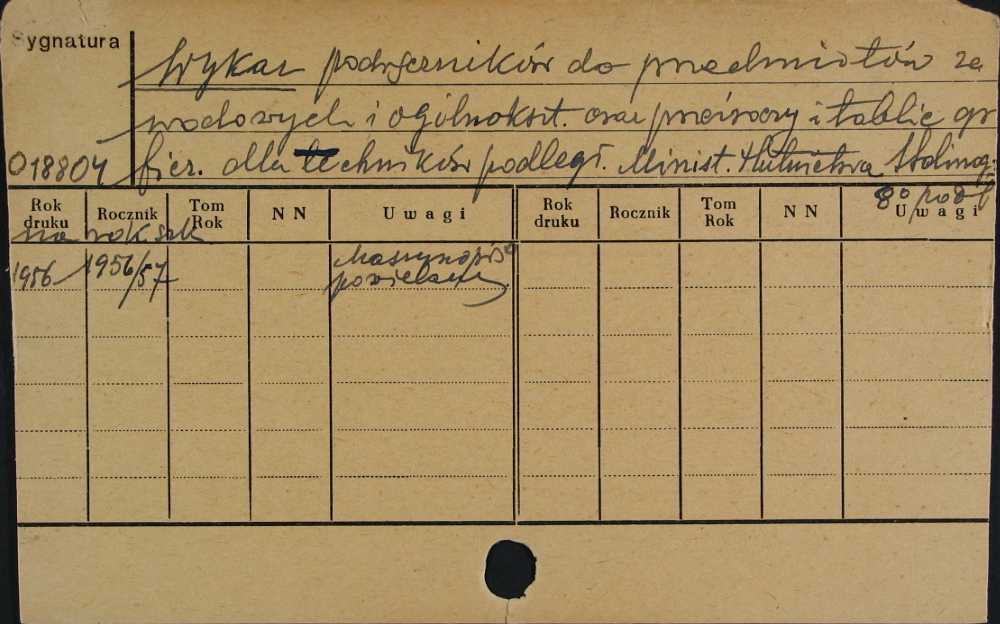 Sygnatura
Wykaz podręczników do przedmiotów za
wodowych i ogólnokszt. oraz pomocy i tablic gra
018804 ficz. dla techników podległ. Minist. Hutnictwa Stalinogr.
8º podł
Rok druku Rocznik Tom Rok N N Uwagi Rok druku Rocznik Tom Rok N N Uwagi
na rok szk
1956 1956/57 Maszynopis
powielany